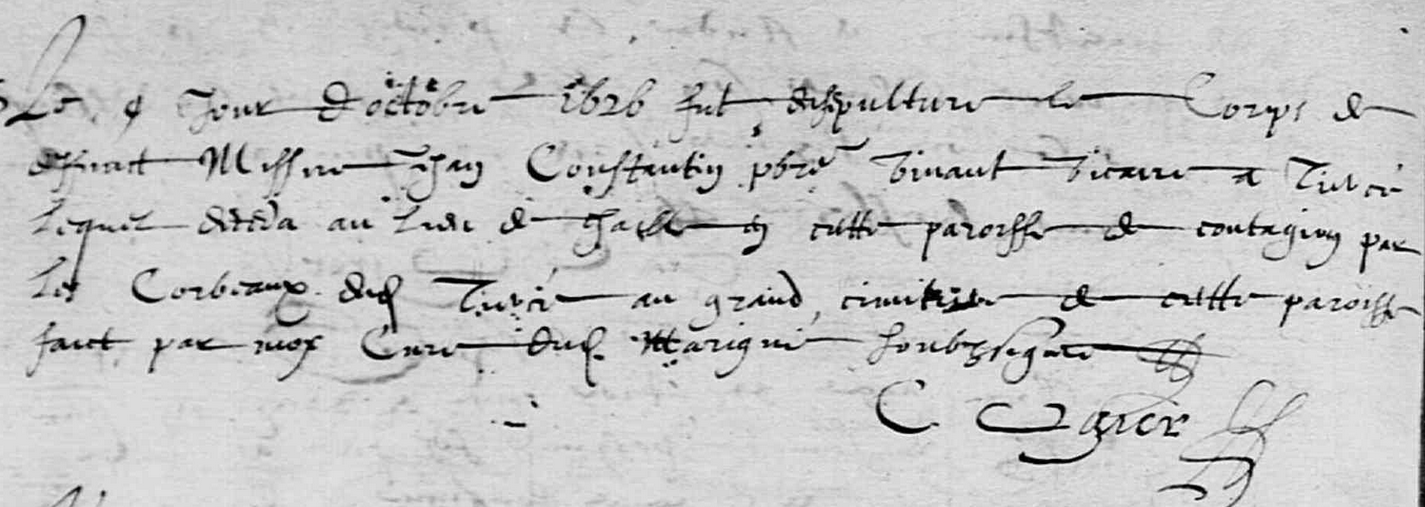 Le 9 Jour d'octobre 1626 fut desepulture le Corps de
deffunct Missire Jhan Constantin pbre vivant vicaire a Tiercé
lequel deceda au lieu de en cette paroisse de contagion par
les Corbeaux dud Tiercé au grand cimitiere de cette paroisse
faict par moy Curé dud Marigné soubzsigné
C